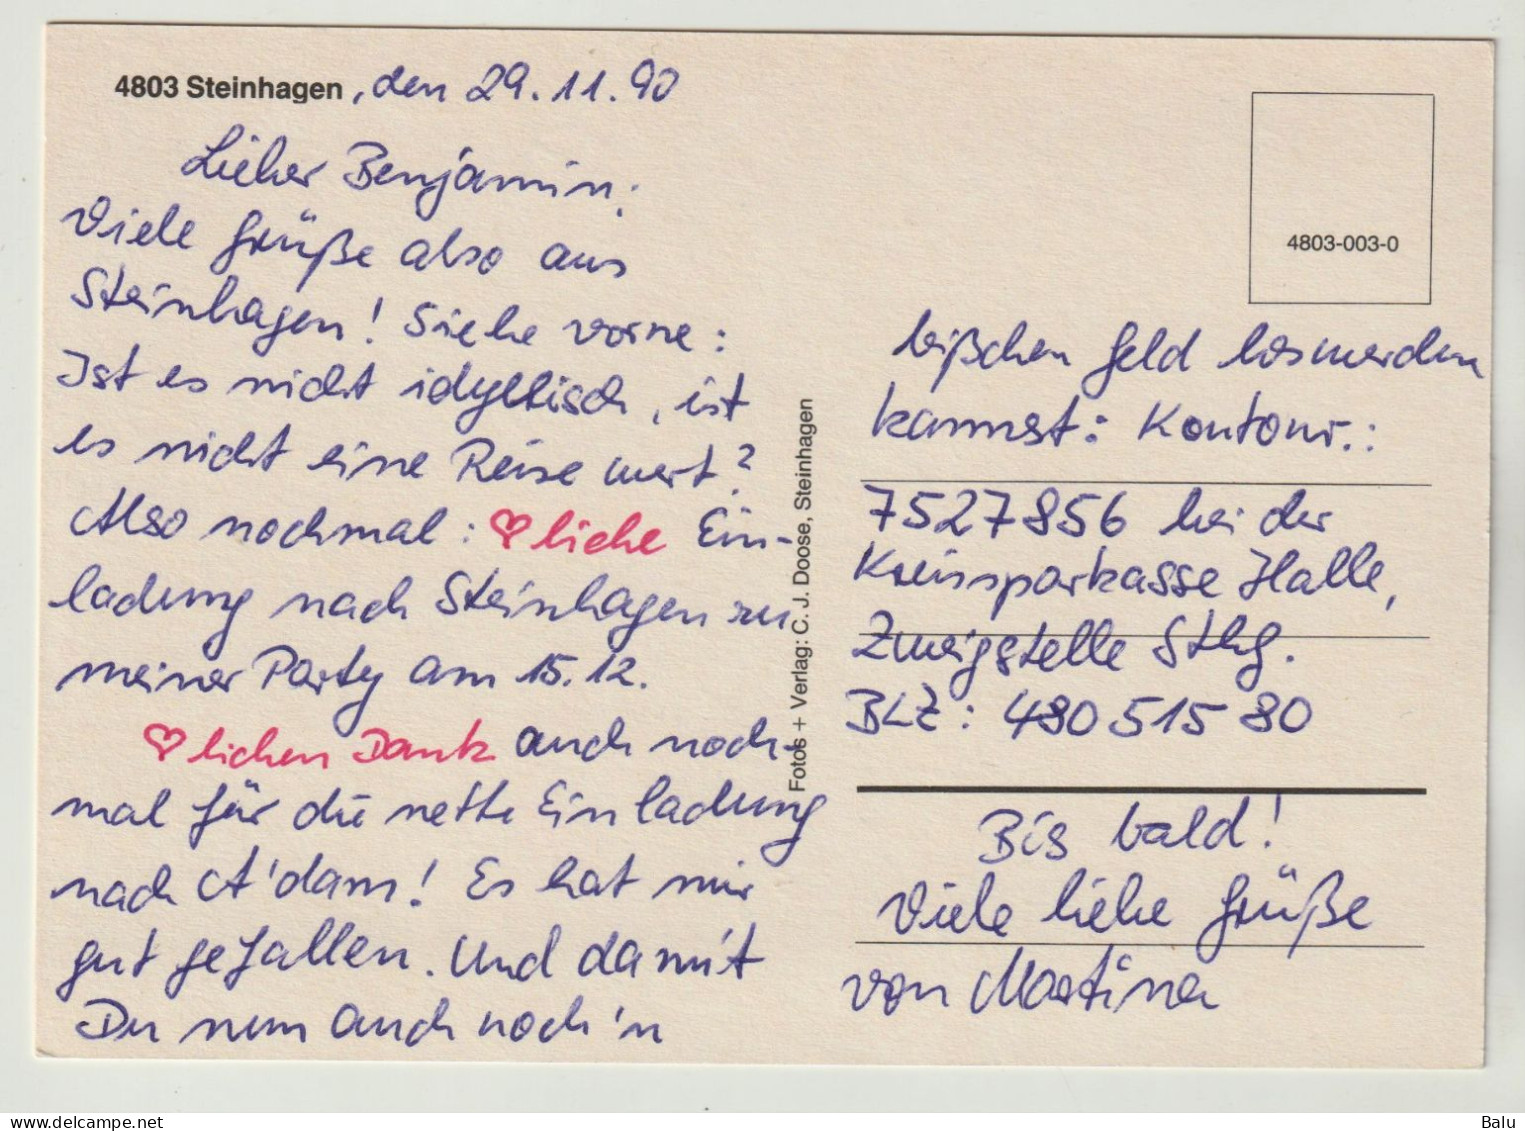 4803 Steinhagen, den 29.11.90
Lieber Benjamin,
Viele Grüße also aus
Steinhagen! Siehe vorne:
Ist es nicht idyllisch, ist
es nicht eine Reise wert?
Also nochmal: ♡liche Ein-
ladung nach Steinhagen zu
meiner Party am 15.12.
♡lichen Dank auch noch-
mal für die nette Einladung
nach A'dam! Es hat mir
gut gefallen. Und damit
Du nun auch noch 'n
Fotos + Verlag: C. J. Doose, Steinhagen
4803-003-0
bißchen Geld loswerden
kannst: Kontonr.:
7527856 bei der
Kreissparkasse Halle,
Zweigstelle Sthg.
BLZ: 480 515 80
Bis bald!
Viele liebe Grüße
von Martina
www.delcampe.net
Balu